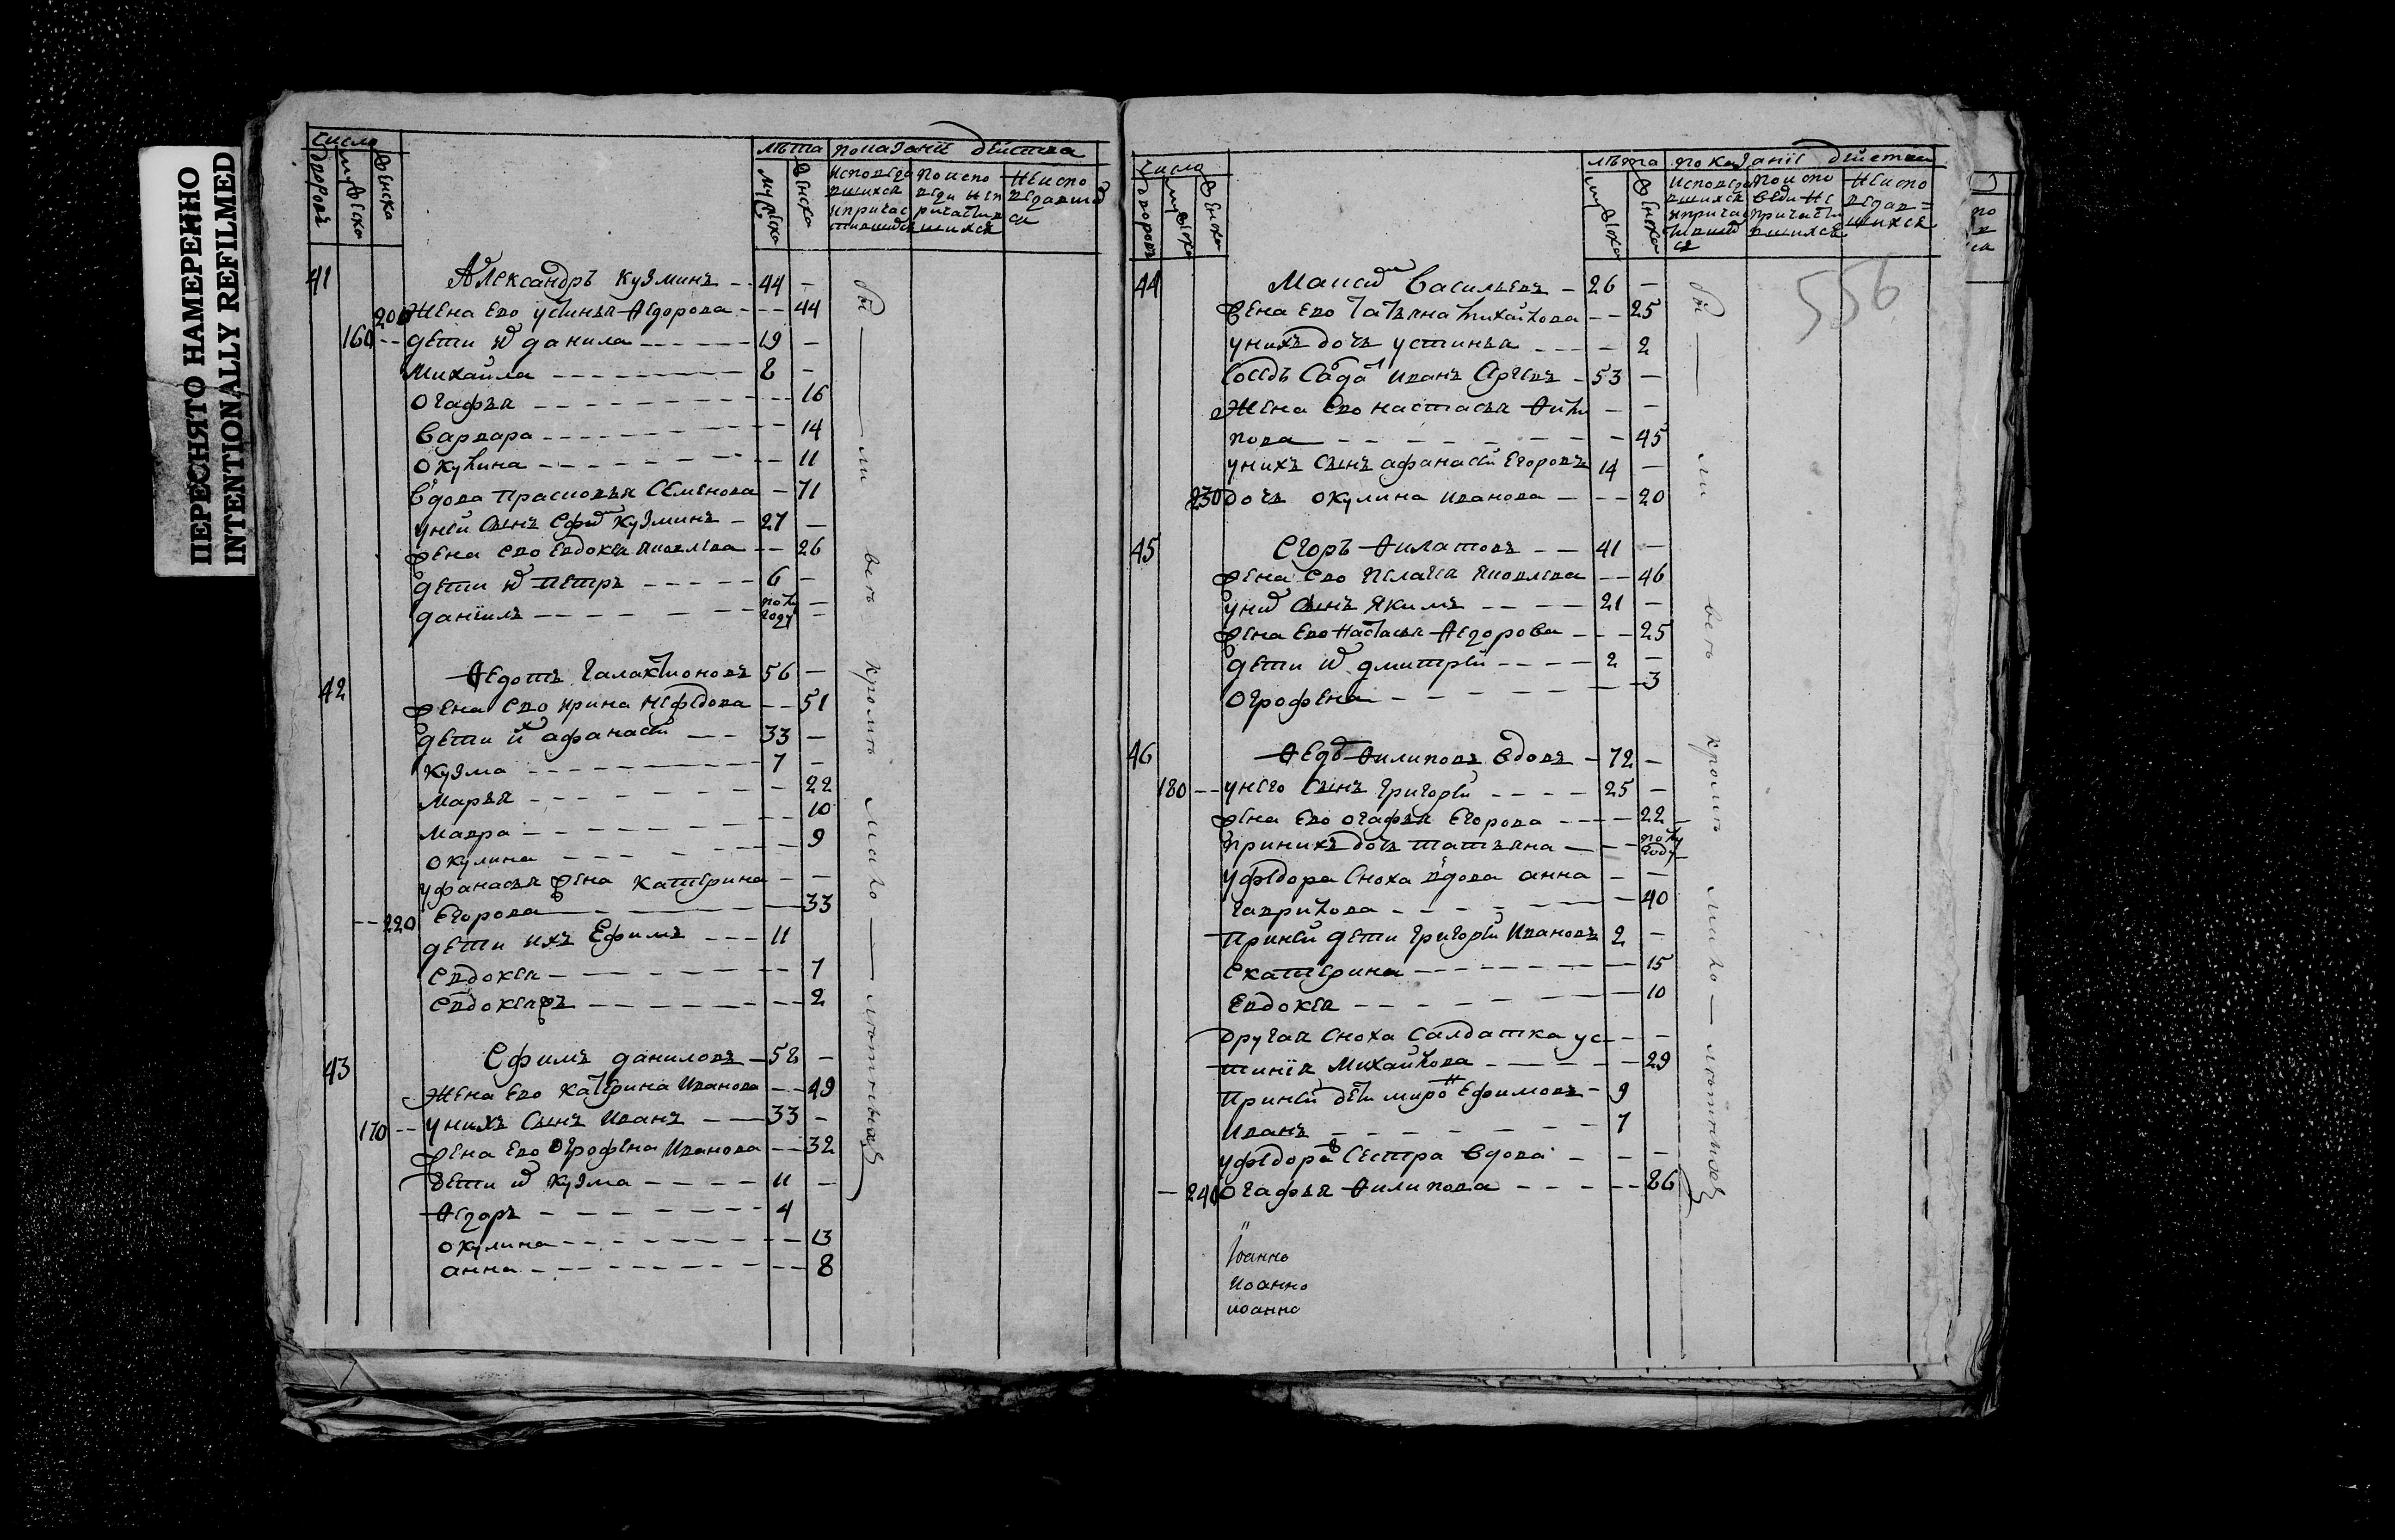 ПЕРЕСНЯТО НАМЕРЕННО
INTENTIONALLY REFILMED
число
дворовъ
мужска
женска
лѣта
мужска
женска
показание действа
исповеда
вшихся
и причас
тившихся
по испо
веди не п
ричастив
шихся
неиспо
ведавших
ся
41 Александръ Кузминъ 44 —
200 жена ево устинья Федорова — 44
160 дети их данила 19 —
Михайла 8 —
огафья — 16
Варвара — 14
окулина — 11
вдова Прасковья Семенова — 71
у ней сынъ Ефимъ Кузминъ 27 —
жена ево Евдокея Яковлева — 26
дети их Петръ 6 —
данїилъ полу году —
42 Федотъ Галактионовъ 56 —
жена ево ирина Нефедова — 51
дети их афанасей 33 —
кузма 7 —
марья — 22
мавра — 10
окулина — 9
у фанасья жена катерина — —
220 Егорова — 33
дети ихъ Ефимъ 11
Евдокея — 7
Евдокея жъ — 2
43 Ефимъ даниловъ 58 —
жена ево катерина Иванова — 49
170 у нихъ сынъ Иванъ 33 —
жена ево огрофена Иванова — 32
дети их кузма 11 —
Федоръ 4
окулина — 13
анна — 8
бы — ли веѣ кромѣ мало — лѣтныхъ
число
дворовъ
мужска
женска
лѣта
мужска
женска
показание действа
исповеда
вшихся
и причас
тивших
ся
по испо
веди не
причасти
вшихся
неиспо
ведав=
шихся
556
44 Максимъ Васильевъ 26 —
жена ево Татьяна михайлова — 25
у нихъ дочь устинья — 2
соседъ Иванъ 53 —
жена ево настасья Фили — —
пова — 45
у нихъ сынъ афанасей Егоровъ 14 —
230 дочь окулина иванова — 20
45 Егоръ Филатовъ 41 —
жена ево Пелагея Яковлева — 46
у них сынъ Якимъ 21 —
жена ево настасья Федорова — 25
дети их дмитрей 2 —
огрофена — 3
46 Федоръ Филиповъ вдовъ 72 —
180 у него сынъ григорей 25 —
жена ево огафья Егорова — 22
при нихъ дочь татьяна — полу году
у федора сноха вдова анна — —
гаврилова — 40
при ней дети григорей Ивановъ 2 —
Екатерина — 15
Евдокея — 10
другая сноха салдатка ус — —
тинїя Михайлова — 29
при ней дети миронъ Ефимовъ 9
Иванъ 7
у федора сестра вдова — —
240 огафья Филипова — 86
бы — ли веѣ кромѣ мало — лѣтныхъ
Іоанно
Иоанно
иоанно